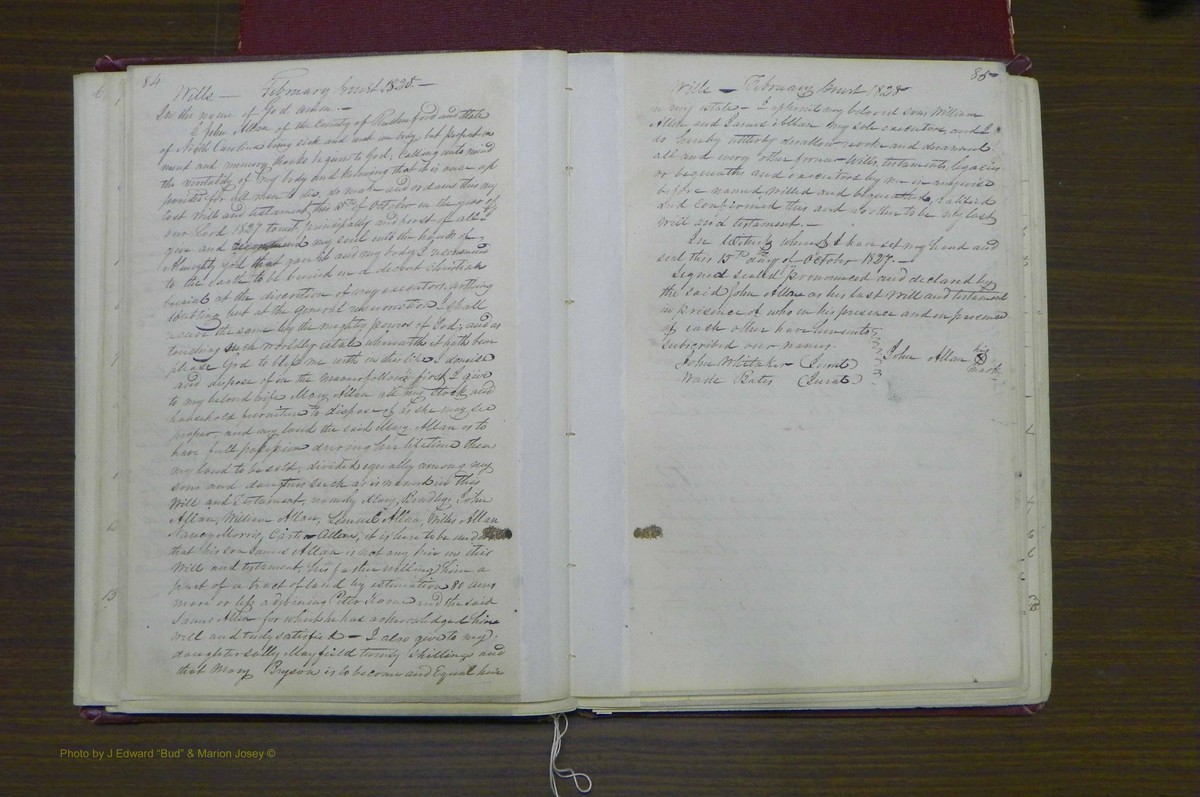 84
Wills — February Court 1828 —
In the name of God amen. —
I John Allan of the County of Rutherford and State
of North Carolina being sick and weak in body, but perfect in
mind and memory, thanks be given to God, Calling unto mind
the mortality of my body and knowing that it is once ap
pointed for all men to die, do make and ordain this my
last Will and testament this 15th of October in the year of
our Lord 1827 to wit, principally and first of all I
give and recommend my soul into the hands of
Almighty god that gave it and my body I recommend
to the earth to be buried in a decent christian
burial at the discretion of my executors, nothing
doubting but at the general resurrection I shall
receive the same by the mighty power of God; and as
touching such worldly estate wherewith it hath been
please God to bless me with in this life I demise
and dispose of in the manner following first, I give
to my beloved wife Mary Allan all my stock and
household furniture to dispose of as she may see
proper, and my land the said Mary Allan is to
have full possession during her lifetime then
my land to be sold, divided equally among my
sons and daughters such as is named in this
Will and testament, namely Mary Bradley, John
Allan, William Allan, Lemuel Allan, Willis Allan
Nancy Morris, Carter Allan, it is here to be
that his son James Allan is not any heir in this
Will and testament, his father willing him a
part of a tract of land by estimation 80 acres
more or less adjoining Peter and the said
James Allan for which he has acknowledged him
will and truly satisfied — I also give to my
daughter Sally Mayfield twenty shillings and
that Mary Bryson is to become and Equal heir
85
Wills — February Court 1828
in my estate — I appoint my beloved sons William
Allan and James Allan my sole executors, and I
do hereby utterly disallow revoke and disannul
all and every other former Wills, testaments, legacies
or bequeaths and executors by me in anywise
before named willed and bequeathed, ratified
and confirmed this and no other to be my last
will and testament. —
In witness whereof I have set my hand and
seal this 15th day of October 1827. —
Signed sealed pronounced and declared by
the said John Allan as his last Will and testament
in presence of who in his presence and in presence
of each other have hereunto
subscribed our names.
John Whitaker (Jurat)
Wade Bates (Jurat)
John Allan his X mark
Photo by J Edward "Bud" & Marion Josey ©